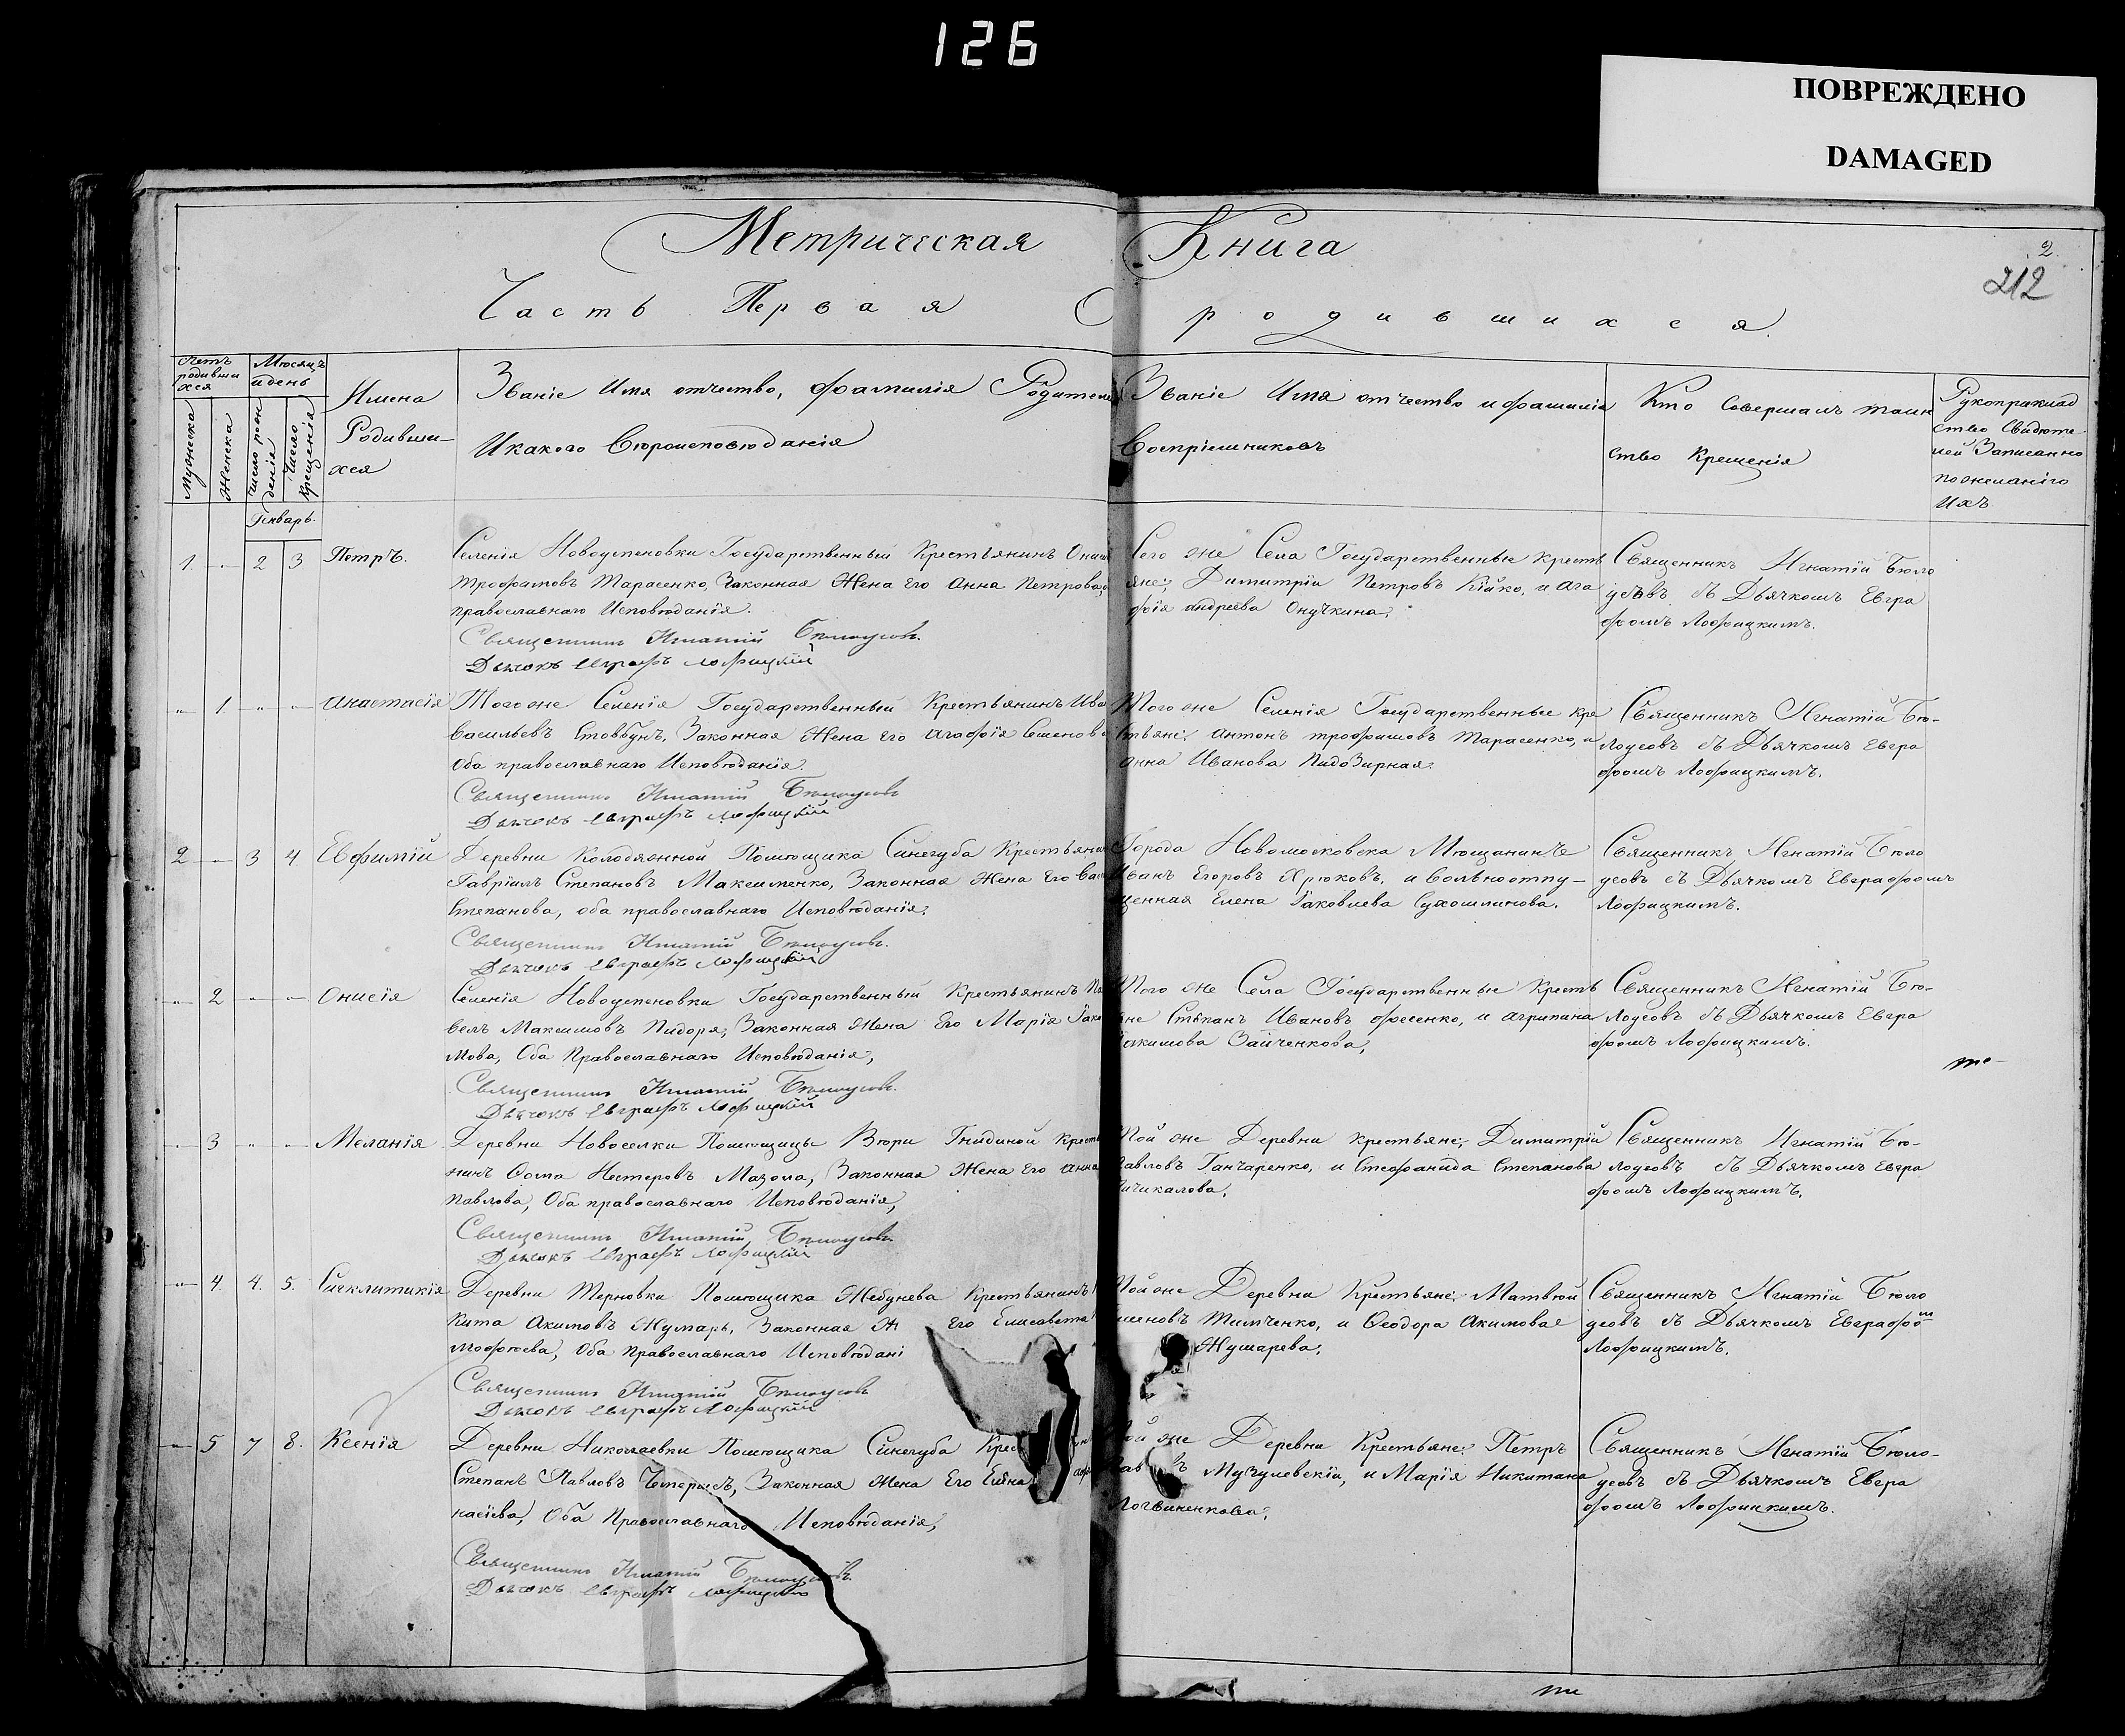 126
ПОВРЕЖДЕНО
DAMAGED
Метрическая Книга
2
212
Часть Первая О родившихся.
Счетъ родивши хся
Мужеска
Женска
Мѣсяцъ и день
число рож денія
Число Крещенія
Имена Родивши- хся
Званіе Имя отчество, фамилія Родителе
Икакого Вѣроисповѣданія
Званіе Имя отчество и фамилія
Воспріемниковъ
Кто Совершалъ таин
ство Крещенія
Рукоприклад
ство Свидѣте
лей Записанно
Ихъ.
Генварь.
1. 2 3 Петръ.
Селенія Новоуспеновки Государственный Крестьянинъ
Трофимовъ Тарасенко, Законная Жена Его Анна Петрова,
православнаго Исповѣданія.
Священникъ Игнатій Бѣлоусовъ.
Дьячокъ Евграфъ Лофицкій
Сего же Села Государственные кресть
яне; Димитрій Петровъ Кійко, и Ага
фія андреева Онучкина;
Священникъ Игнатій Бѣло
усовъ съ Дьячкомъ Евгра
фомъ Лофицкимъ.
1 Анастасія
Того же Селенія Государственный Крестьянинъ Ива
Васильевъ Стовбунъ, Законная Жена Его Агафія Семенов
Оба православнаго Исповѣданія.
Священникъ Игнатій Бѣлоусовъ
Дьячокъ Евграфъ Лофицкій
Того же Селенія Государственные кре
стьяне; Антонъ трофимовъ Тарасенко, и
Анна Иванова Пидозирная.
Священникъ Игнатій Бѣ-
лоусовъ съ Дьячкомъ Евгра
фомъ Лофицкимъ.
2 3 4 Евфимій
Деревни Колодяжной Помѣщика Синегуба Крестьянин
Гавріилъ Степановъ Максименко, Законная Жена Его Вас
Степанова, оба православнаго Исповѣданія.
Священникъ Игнатій Бѣлоусовъ.
Дьячокъ Евграфъ Лофицкій
Города Новомосковска Мѣщанинъ
Иванъ Егоровъ Хрюковъ, и Вольноотпу-
щенная Елена Іаковлева Сухомлинова.
Священникъ Игнатій Бѣло
усовъ съ Дьячкомъ Евграфомъ
Лофицкимъ.
2 Онисія
Селенія Новоуспеновки Государственный Крестьянинъ Па
велъ Максимовъ Пидоря, Законная Жена Его Марія Іако
Оба Православнаго Исповѣданія,
Священникъ Игнатій Бѣлоусовъ.
Дьячокъ Евграфъ Лофицкій
Того же Села Государственные кресть
яне Стѣпанъ Ивановъ Фесенко, и Агрипина
Зайченкова,
Священникъ Игнатій Бѣ-
лоусовъ съ Дьячкомъ Евгра
фомъ Лофицкимъ.
3 Меланія
Деревни Новоселки Помѣщицы Вѣры Гнидиной Крестья
нинъ Фома Нестеровъ Мазола, Законная Жена Его Анна
Павлова, Оба православнаго Исповѣданія,
Священникъ Игнатій Бѣлоусовъ
Дьячокъ Евграфъ Лофицкій
Той же Деревни крестьяне; Димитрій
Павловъ Ганчаренко, и Стефанида Степанова
Священникъ Игнатій Бѣ-
лоусовъ съ Дьячкомъ Евгра
фомъ Лофицкимъ.
4 4. 5. Сигклитикія
Деревни Терновки Помѣщика Жебунева Крестьянинъ
кита Акимовъ Жумарь, Законная Ж Его Елисавета
Оба Православнаго Исповѣдані
Священникъ Игнатій Бѣлоусовъ
Дьячокъ Евграфъ Лофицкій
Той же Деревни Крестьяне; Матвѣй
Тимченко, и Ѳеодора Акимова
Жумарева;
Священникъ Игнатій Бѣло
усовъ съ Дьячкомъ Евграфом
Лофицкимъ.
5 7 8. Ксенія
Деревни Николаевки Помѣщика Синегуба Крес
Степанъ Павловъ Законная Жена Его
насіева, Оба Православнаго Исповѣданія,
Священникъ Игнатій Бѣлоусовъ.
Дьячокъ Евграфъ Лофицкій
той же Деревни Крестьяне; Петръ
Мугулевскій, и Марія Никитина
Логвиненкова;
Священникъ Игнатій Бѣло-
усовъ съ Дьячкомъ Евгра
фомъ Лофицкимъ.